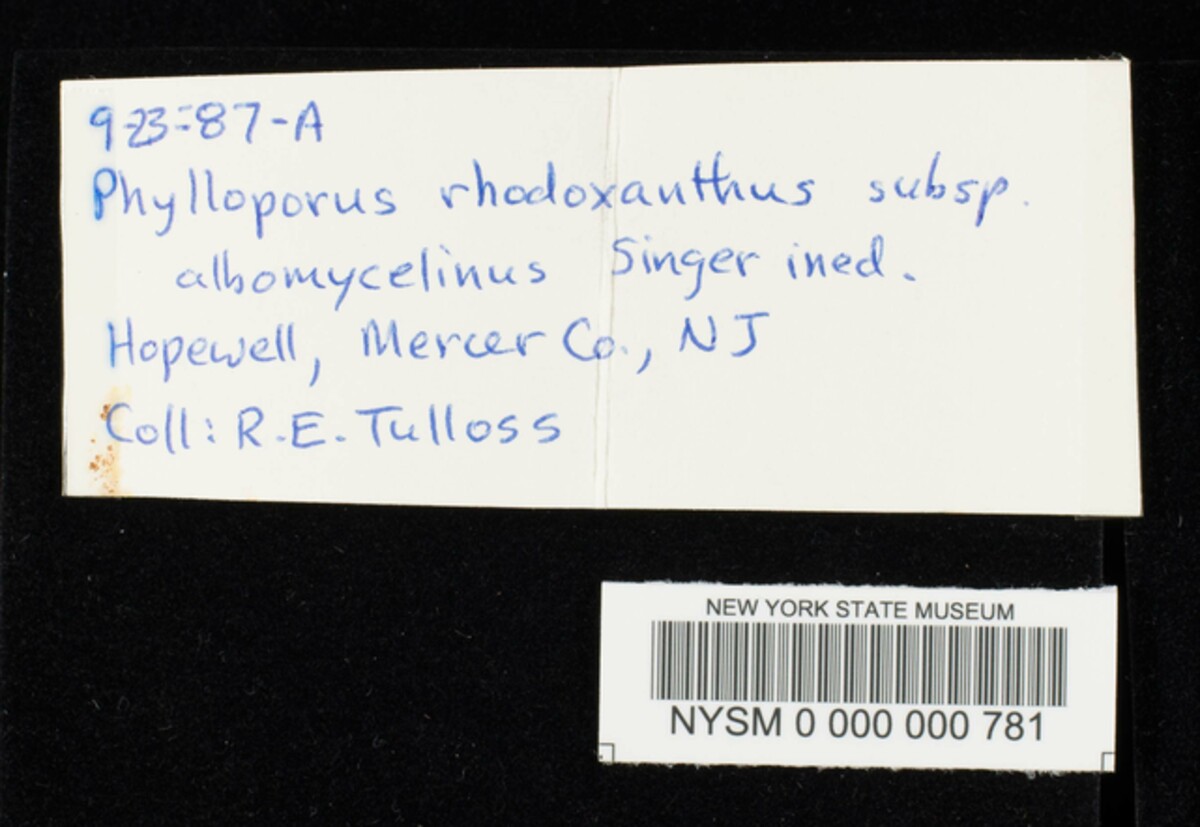 9-23-87-A
Phylloporus rhodoxanthus subsp.
albomycelinus Singer ined.
Hopewell, Mercer Co., NJ
Coll: R.E. Tulloss
NEW YORK STATE MUSEUM
NYSM 0 000 000 781